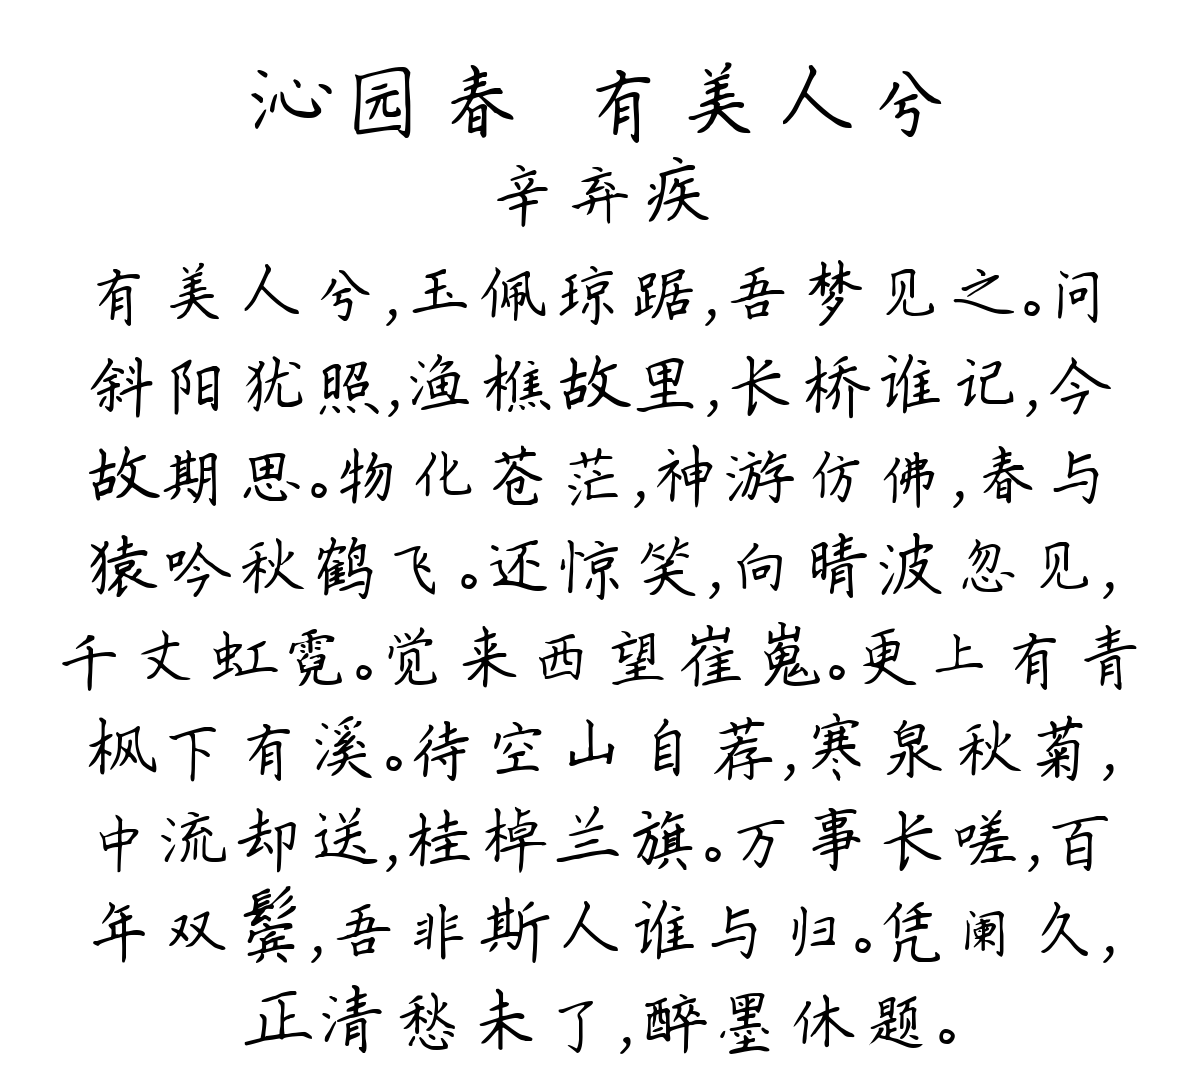 沁园春 有美人兮
辛弃疾
有美人兮,玉佩琼踞,吾梦见之。问
斜阳犹照,渔樵故里,长桥谁记,今
故期思。物化苍茫,神游仿佛,春与
猿吟秋鹤飞。还惊笑,向晴波忽见,
千丈虹霓。觉来西望崔嵬。更上有青
枫下有溪。待空山自荐,寒泉秋菊,
中流却送,桂棹兰旗。万事长嗟,百
年双鬓,吾非斯人谁与归。凭阑久,
正清愁未了,醉墨休题。